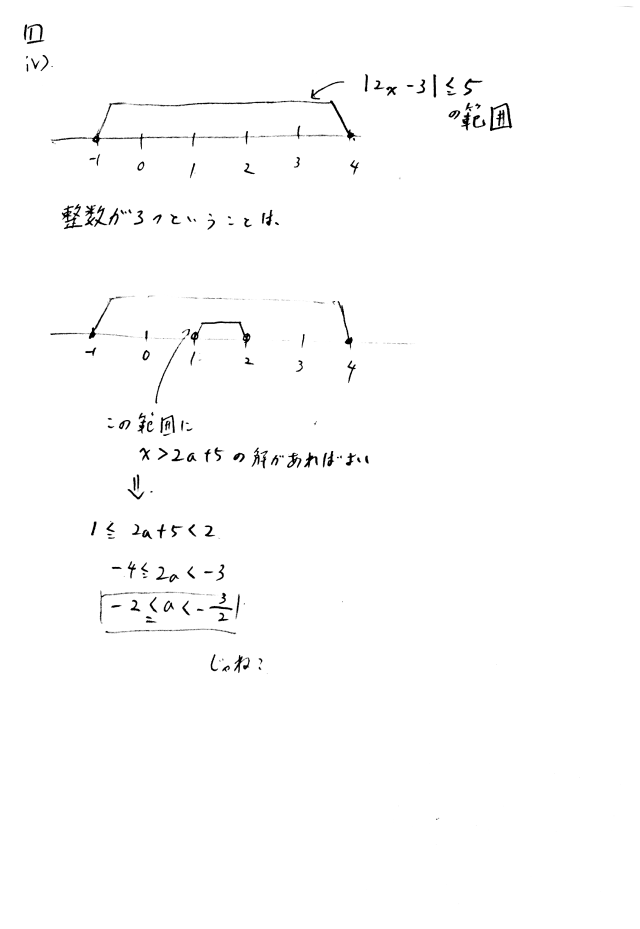 1
iv).
|2x-3|≦5
の範囲
-1 0 1 2 3 4
整数が3つということは、
-1 0 1 2 3 4
この範囲に
x>2a+5 の解があればよい
⇓.
1≦2a+5<2
-4≦2a<-3
-2≦a<-3/2
じゃね?